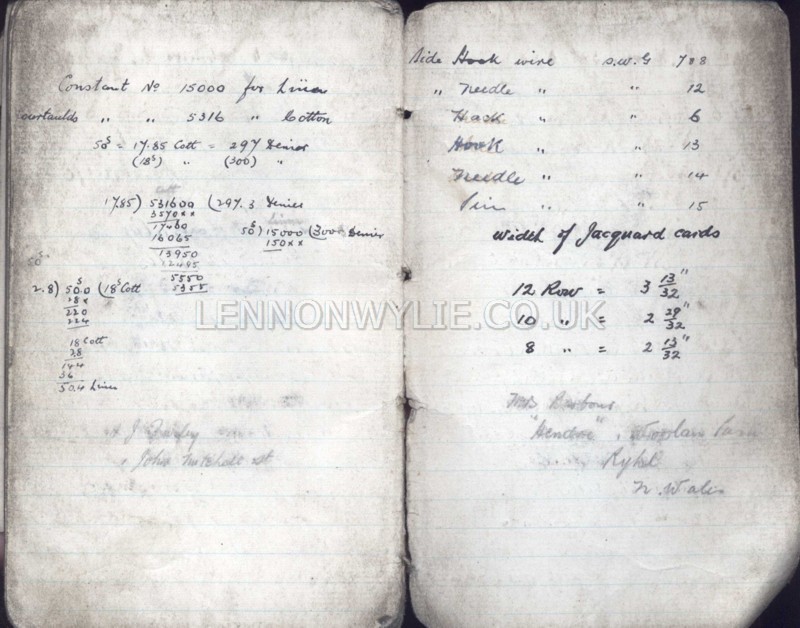 Constant No 15000 for Linen
Courtaulds " " 5316 " Cotton
50s = 17.85 Cott = 297 Denier
(18s) " (300) "
Cott
17.85) 531600 (297.3 Denier
3570xx
17460
16065
13950
12495
5550
5355
50) 15000 (300 Denier
150xx
2.8) 50.0 (18s Cott
28x
220
224
18 Cott
2.8
144
36
50.4 Linen
John Mitchell st
Side Hook wire S.W.G 7 8 8
" Needle " " 12
Hook " " 6
Hook " " 13
Needle " " 14
Pin " " 15
Width of Jacquard cards
12 Row = 3 13/32"
10 " = 2 29/32"
8 " = 2 13/32"
Mrs Barbour
"Hendre",
Ryhl
N. Wales
LENNONWYLIE.CO.UK